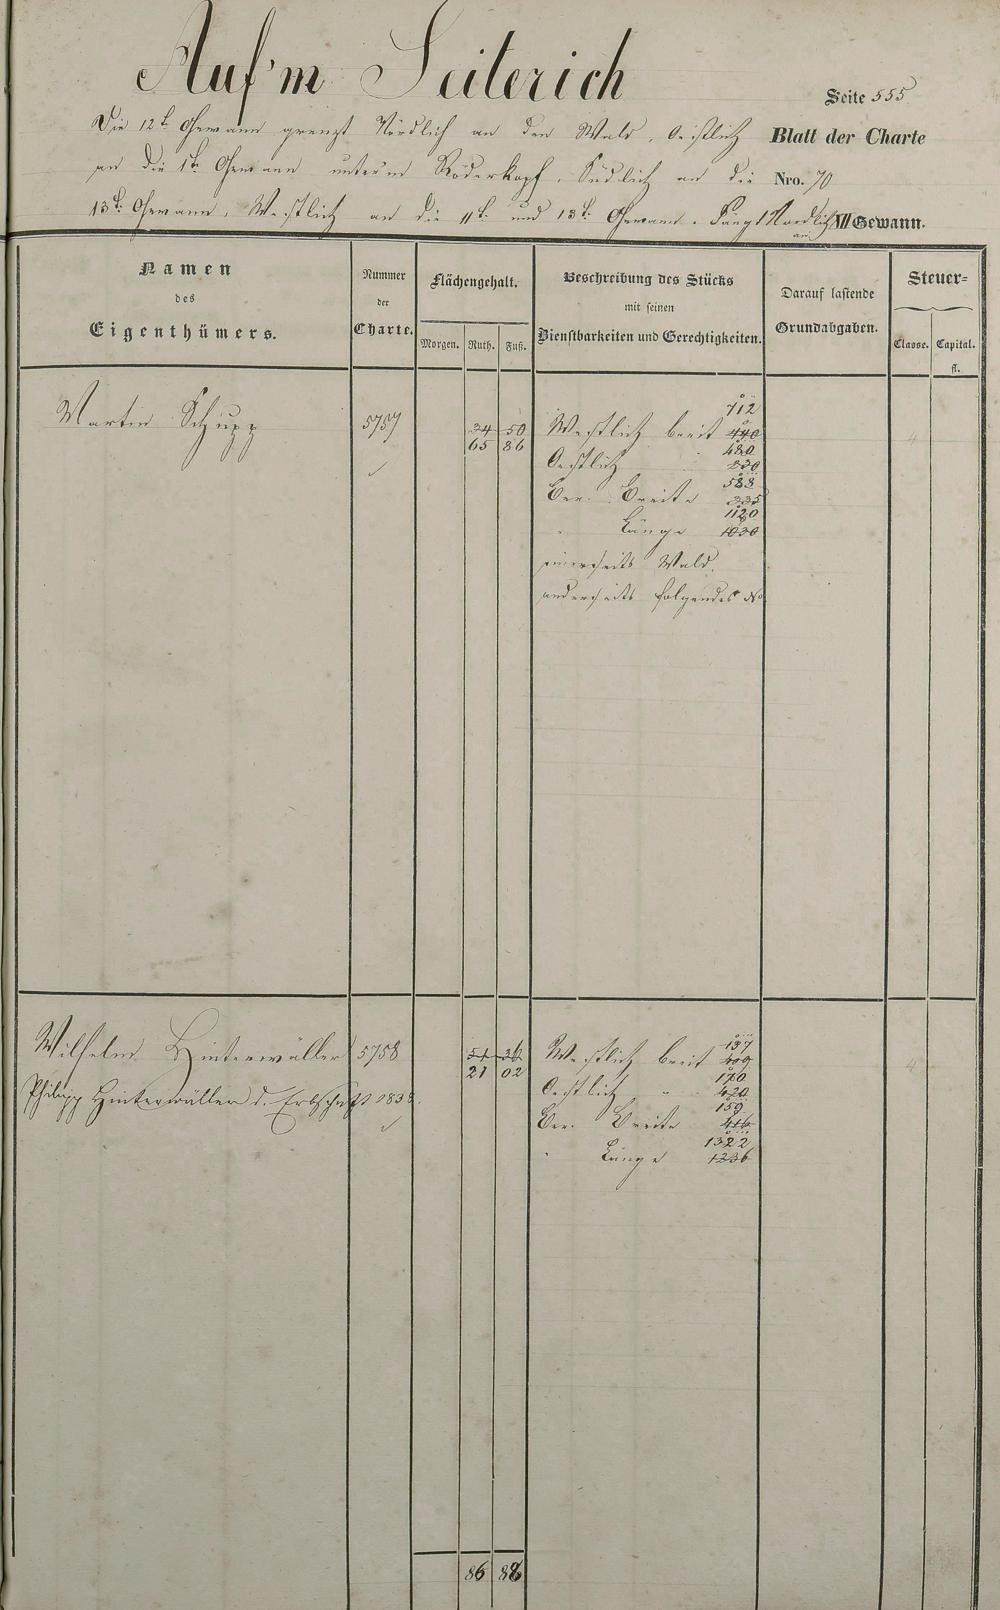 Auf'm Seiterich
Seite 555
Die 12te Gewann grenzt Nördlich an den Wald, Oestlich
Blatt der Charte
an die 1te Gewann unterm Röderkopf, Südlich an die
Nro. 70
13te Gewann, Westlich an die 11te und 13te Gewann. Fängt Nordlich an.
XII Gewann.
Namen des Eigenthümers.
Nummer der Charte.
Flächengehalt.
Morgen. Ruth. Fuß.
Beschreibung des Stücks mit seinen Dienstbarkeiten und Gerechtigkeiten.
Darauf lastende Grundabgaben.
Steuer-
Classe. Capital.
fl.
Martin Schupp 5757
34 50
65 86
712
Westlich breit 440
480
Oestlich 230
588
Ver. Breite 335
1120
" Länge 1030
einerseits Wald.
anderseits folgendes No
4
Wilhelm Hinterwäller 5758
Philipp Hinterwäller d. Erbschaft 1838.
51 36
21 02
137
Westlich breit 409
170
Oestlich " 420
159
Ver. Breite 416
1322
" Länge 1236
4
86 88